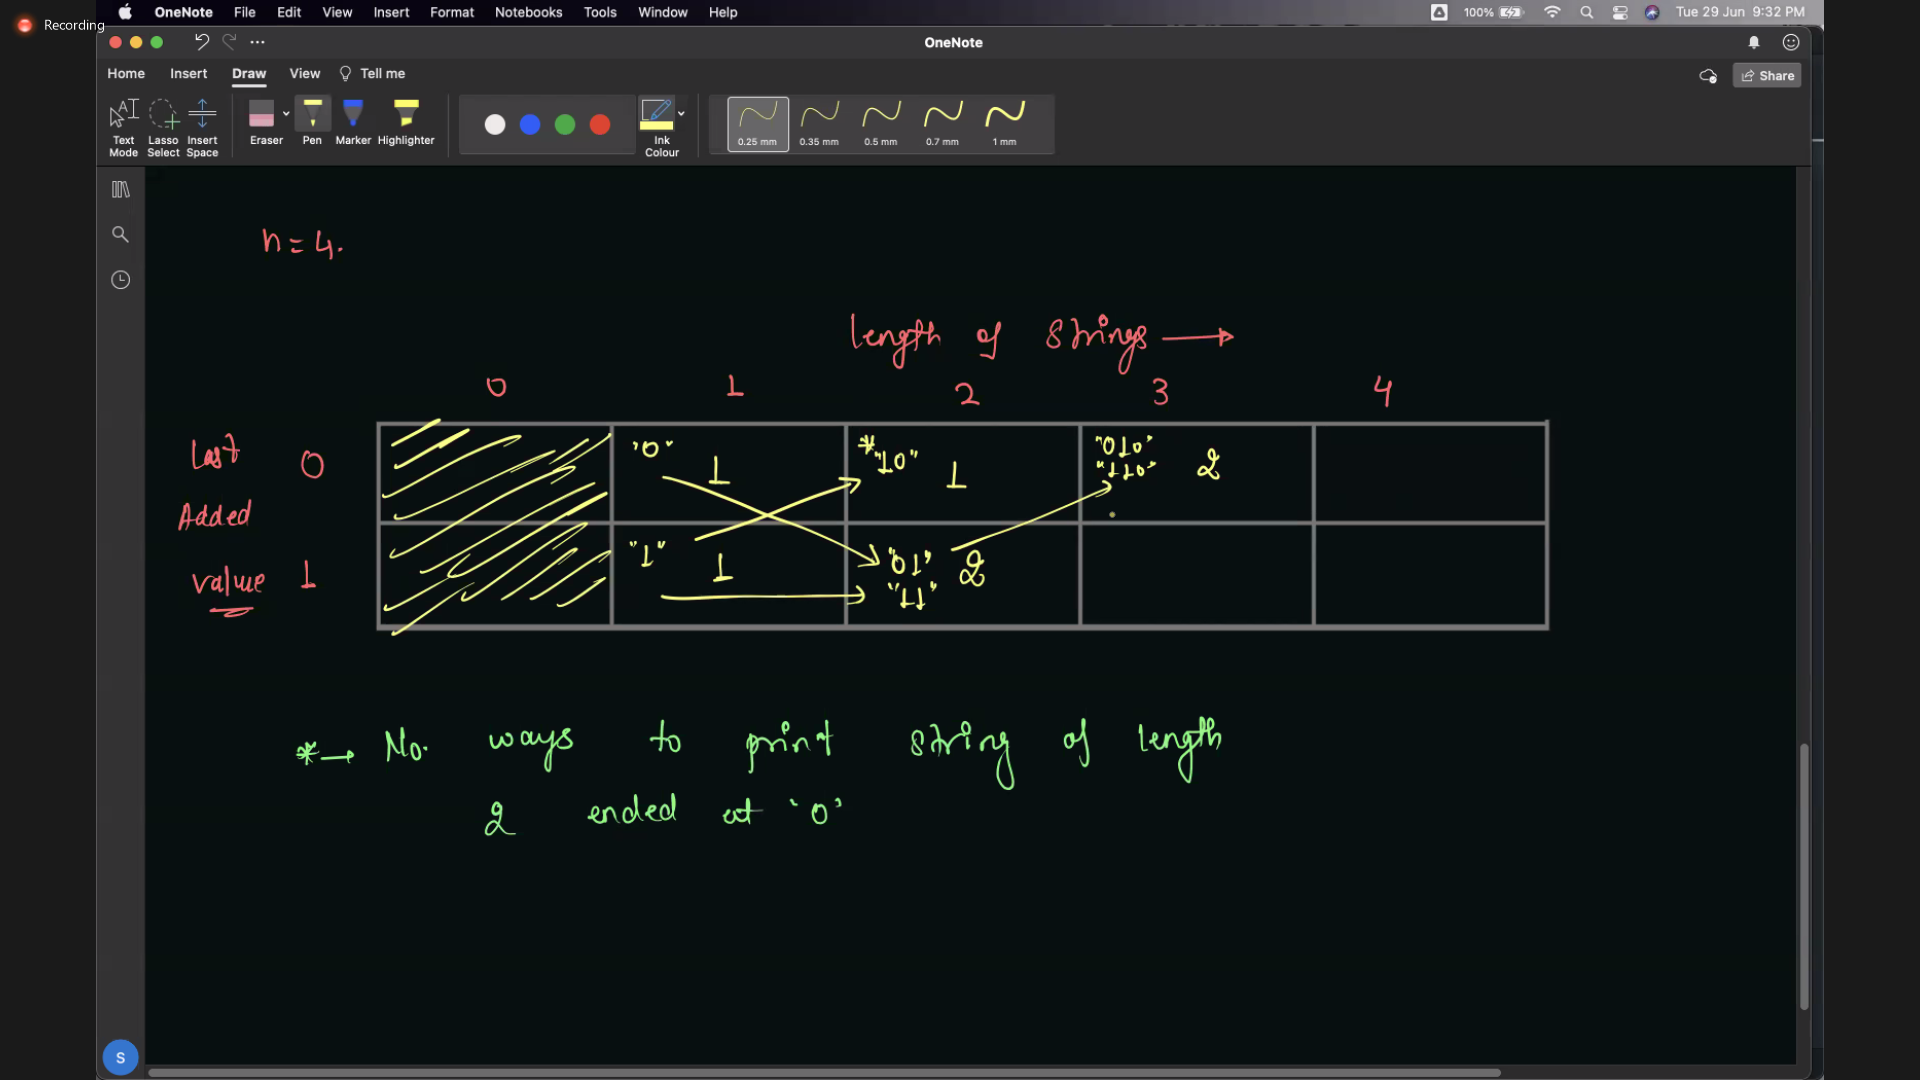 OneNote File Edit View Insert Format Notebooks Tools Window Help 100% Tue 29 Jun 9:32 PM
Recording
OneNote
Home Insert Draw View Tell me Share
Text Mode Lasso Select Insert Space Eraser Pen Marker Highlighter Ink Colour 0.25 mm 0.35 mm 0.5 mm 0.7 mm 1 mm
n = 4.
length of strings →
0 1 2 3 4
Last Added value
0 "0" 1 * "10" 1 "010" "110" 2
1 "1" 1 "01" "11" 2
* → No. ways to print string of length
2 ended at '0'
S